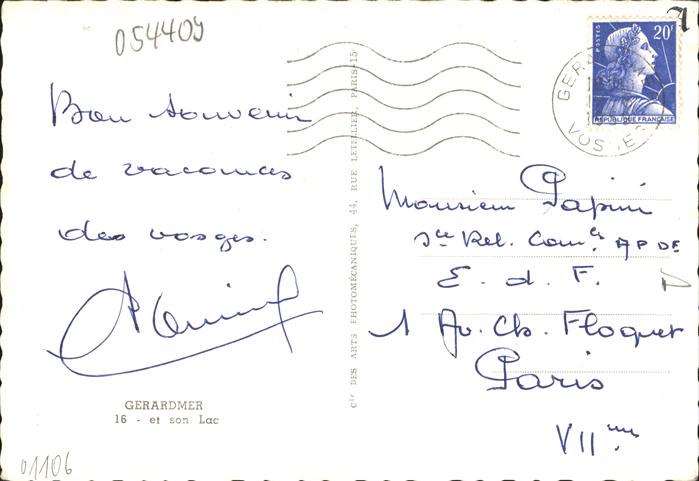 054409
Bon souvenir
de vacances
des vosges.
GERARDMER
16 - et son Lac
01106
Cie DES ARTS PHOTOMÉCANIQUES, 44, RUE LETELLIER, PARIS-15
POSTES
20F
REPUBLIQUE FRANÇAISE
VOSGES
Monsieur Papini
Sce Rel. Comles AP DE
E. d. F.
1 Av. Ch. Floquet
Paris
VIIme